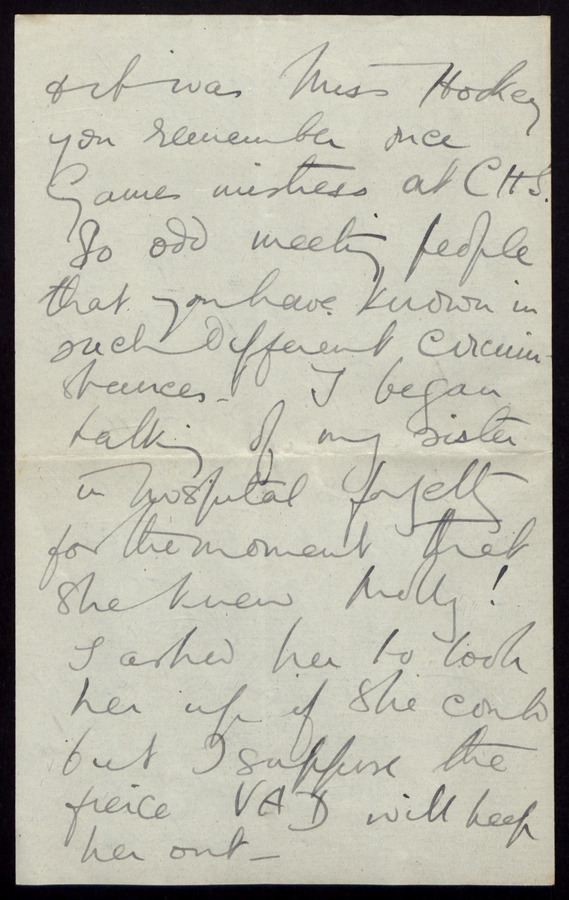 & it was Miss Hockey
you remember once
Games mistress at CHS.
So odd meeting people
that you have known in
such different circum-
stances - I began
talking of my sister
in hospital forgetting
for the moment that
she knew Molly!
I asked her to look
her up if she could
but I suppose the
fierce VAD will keep
her out -